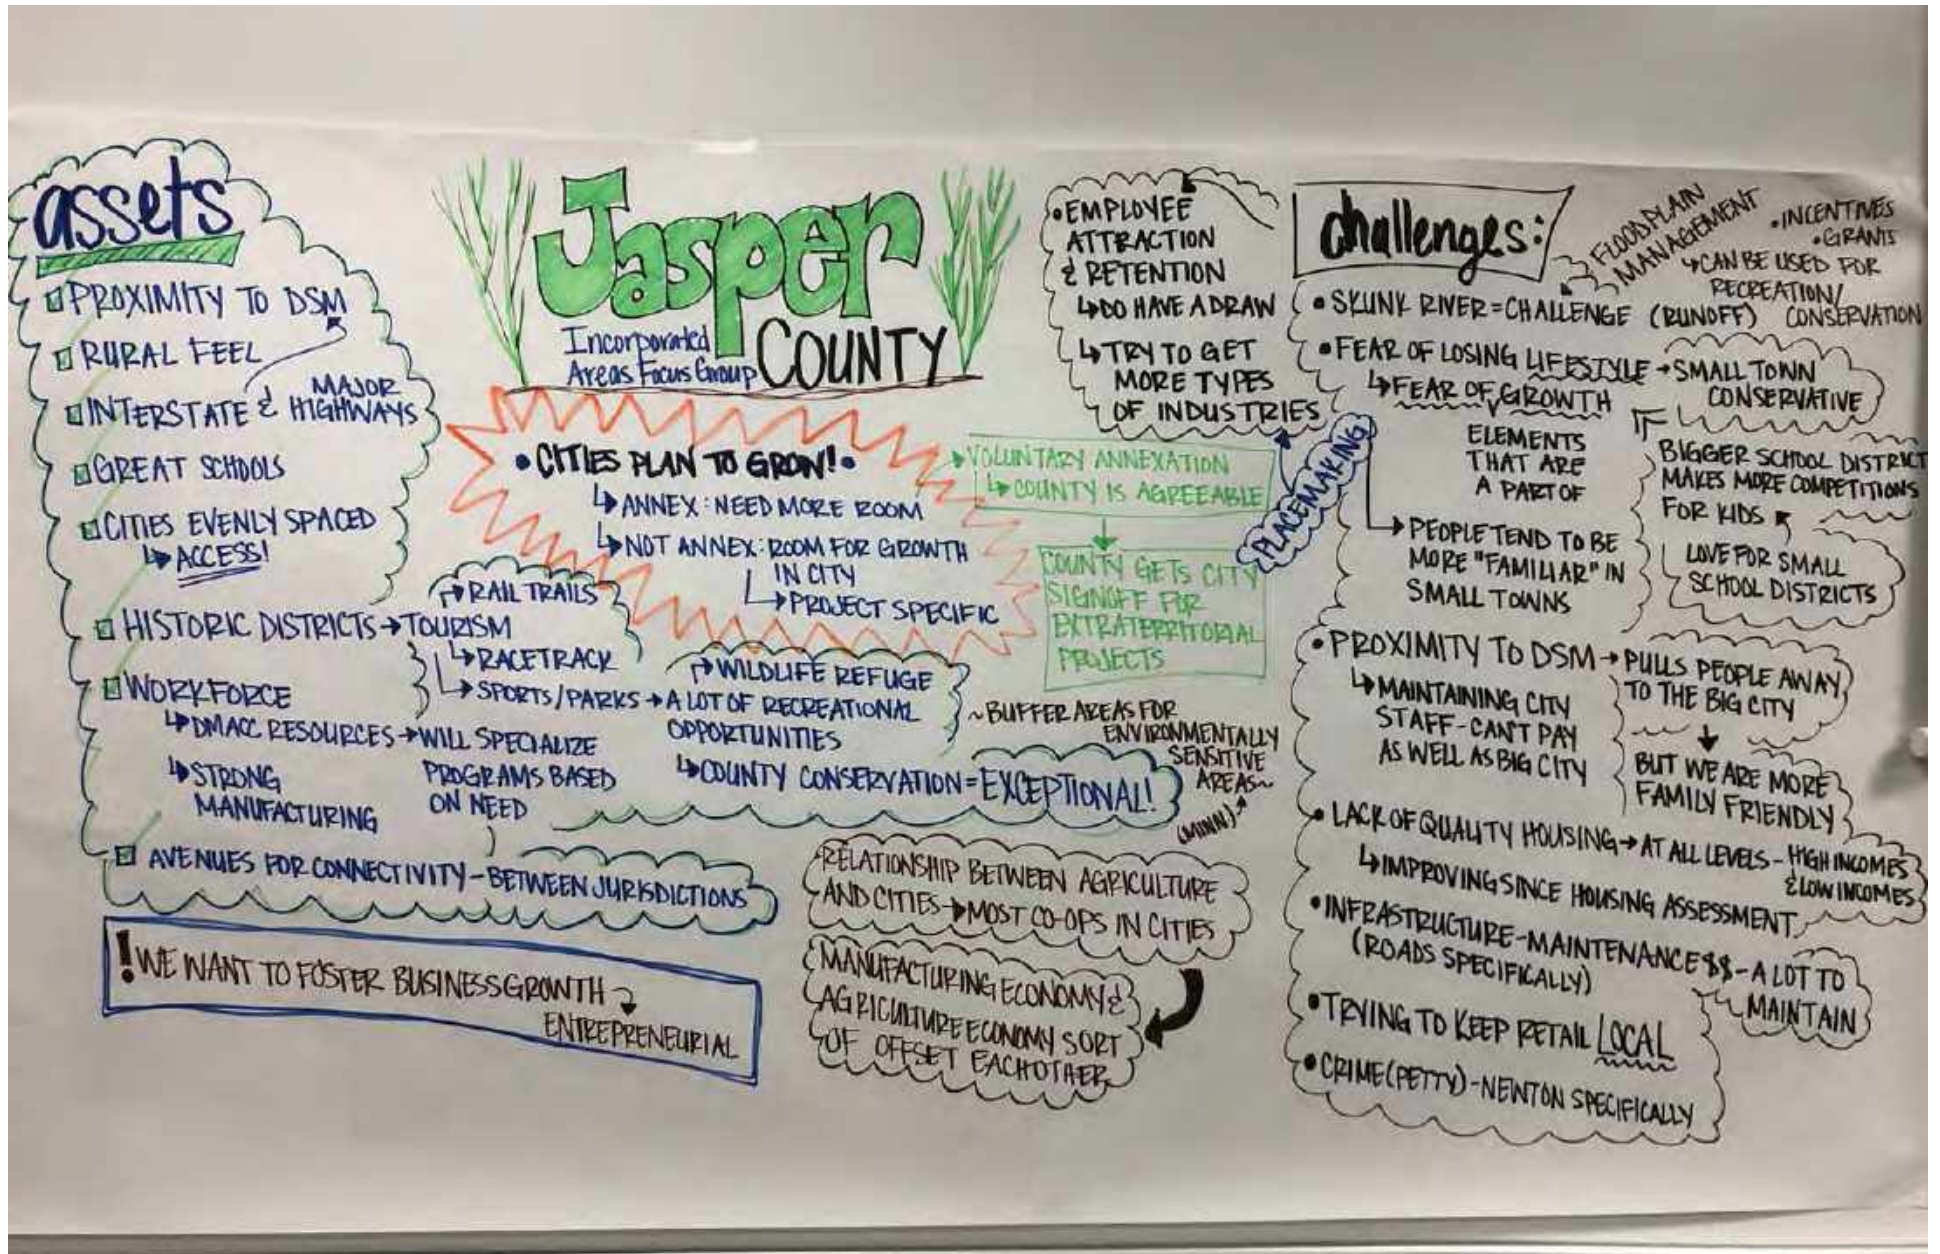 assets
PROXIMITY TO DSM
RURAL FEEL
INTERSTATE & MAJOR
HIGHWAYS
GREAT SCHOOLS
CITIES EVENLY SPACED
↳ ACCESS!
HISTORIC DISTRICTS → TOURISM
RAIL TRAILS
↳ RACETRACK
↳ SPORTS/PARKS → A LOT OF RECREATIONAL
OPPORTUNITIES
WILDLIFE REFUGE
↳ COUNTY CONSERVATION = EXCEPTIONAL!
WORKFORCE
↳ DMACC RESOURCES → WILL SPECIALIZE
PROGRAMS BASED
ON NEED
↳ STRONG
MANUFACTURING
AVENUES FOR CONNECTIVITY - BETWEEN JURISDICTIONS
! WE WANT TO FOSTER BUSINESS GROWTH
ENTREPRENEURIAL
Jasper
COUNTY
Incorporated
Areas Focus Group
• CITIES PLAN TO GROW! •
↳ ANNEX: NEED MORE ROOM
↳ NOT ANNEX: ROOM FOR GROWTH
IN CITY
↳ PROJECT SPECIFIC
VOLUNTARY ANNEXATION
↳ COUNTY IS AGREEABLE
COUNTY GETS CITY
SIGNOFF FOR
EXTRATERRITORIAL
PROJECTS
~BUFFER AREAS FOR
ENVIRONMENTALLY
SENSITIVE
AREAS~
(MINN)
RELATIONSHIP BETWEEN AGRICULTURE
AND CITIES → MOST CO-OPS IN CITIES
MANUFACTURING ECONOMY &
AGRICULTURE ECONOMY SORT
OF OFFSET EACHOTHER
• EMPLOYEE
ATTRACTION
& RETENTION
↳ DO HAVE A DRAW
↳ TRY TO GET
MORE TYPES
OF INDUSTRIES
PLACEMAKING
challenges:
FLOODPLAIN
MANAGEMENT
• INCENTIVES
• GRANTS
↳ CAN BE USED FOR
RECREATION/
CONSERVATION
• SKUNK RIVER = CHALLENGE (RUNOFF)
• FEAR OF LOSING LIFESTYLE → SMALL TOWN
CONSERVATIVE
↳ FEAR OF GROWTH
ELEMENTS
THAT ARE
A PART OF
BIGGER SCHOOL DISTRICT
MAKES MORE COMPETITIONS
FOR KIDS
LOVE FOR SMALL
SCHOOL DISTRICTS
PEOPLE TEND TO BE
MORE "FAMILIAR" IN
SMALL TOWNS
• PROXIMITY TO DSM → PULLS PEOPLE AWAY
TO THE BIG CITY
BUT WE ARE MORE
FAMILY FRIENDLY
↳ MAINTAINING CITY
STAFF - CAN'T PAY
AS WELL AS BIG CITY
• LACK OF QUALITY HOUSING → AT ALL LEVELS - HIGH INCOMES
& LOW INCOMES
↳ IMPROVING SINCE HOUSING ASSESSMENT
• INFRASTRUCTURE - MAINTENANCE $$ - A LOT TO
MAINTAIN
(ROADS SPECIFICALLY)
• TRYING TO KEEP RETAIL LOCAL
• CRIME (PETTY) - NEWTON SPECIFICALLY